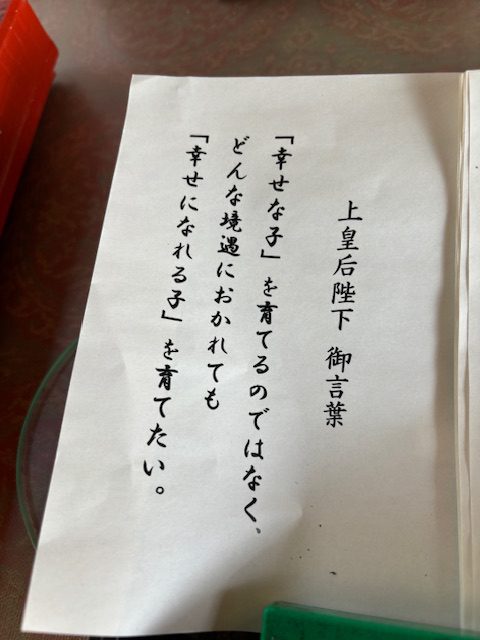 上皇后陛下 御言葉
「幸せな子」を育てるのではなく、
どんな境遇におかれても
「幸せになれる子」を育てたい。